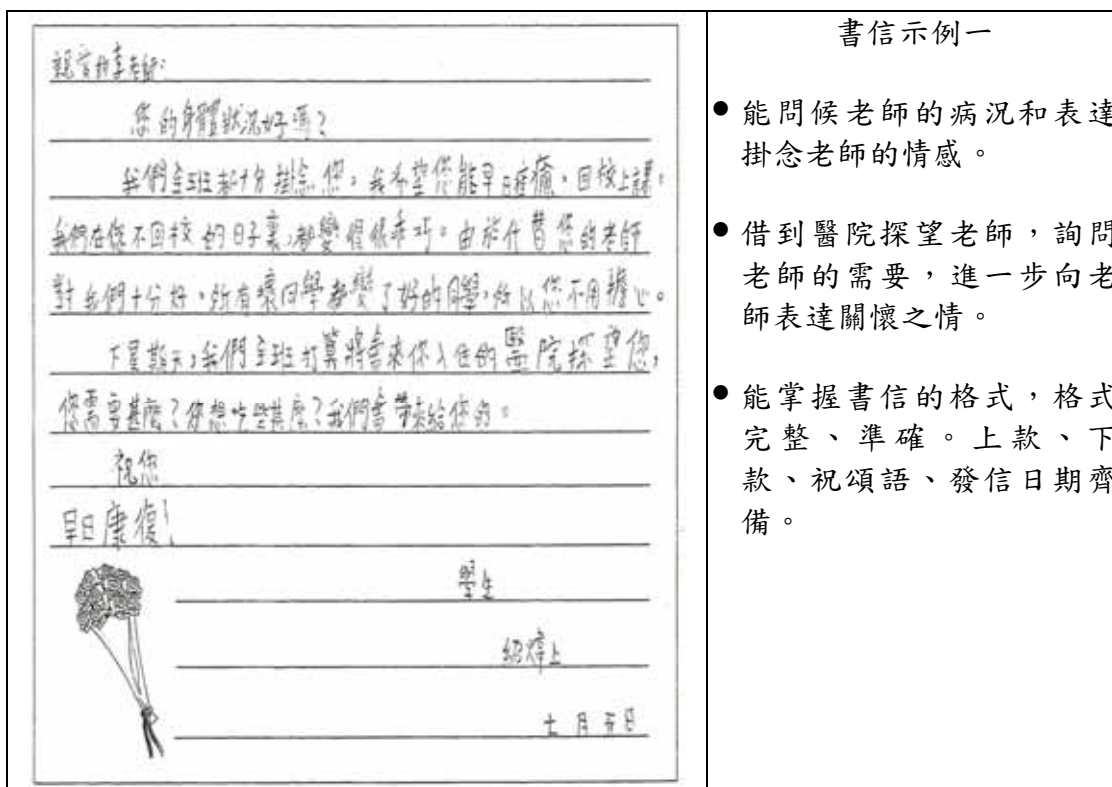 親愛的李老師：
您的身體狀況好嗎？
我們全班都十分掛念您。我希望您能早日痊癒，回校上課。
我們在您不回校的日子裏，都變得很乖巧。由於代替您的老師
對我們十分好，所有壞同學都變了好的同學，所以您不用擔心。
下星期天，我們全班打算將會來你入住的醫院探望您，
您需要甚麼？你想吃些甚麼？我們會帶來給您的。
祝您
早日康復！
學生
紹煒上
七月五日
書信示例一
● 能問候老師的病況和表達
掛念老師的情感。
● 借到醫院探望老師，詢問
老師的需要，進一步向老
師表達關懷之情。
● 能掌握書信的格式，格式
完整、準確。上款、下
款、祝頌語、發信日期齊
備。